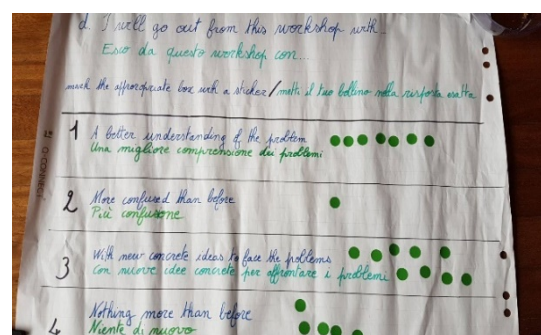 d. I will go out from this workshop with...
Esco da questo workshop con...
mark the appropriate box with a sticker / metti il tuo bollino nella risposta esatta
1 A better understanding of the problem
Una migliore comprensione dei problemi
2 More confused than before
Più confusione
3 With new concrete ideas to face the problems
con nuove idee concrete per affrontare i problemi
4 Nothing more than before
Niente di nuovo